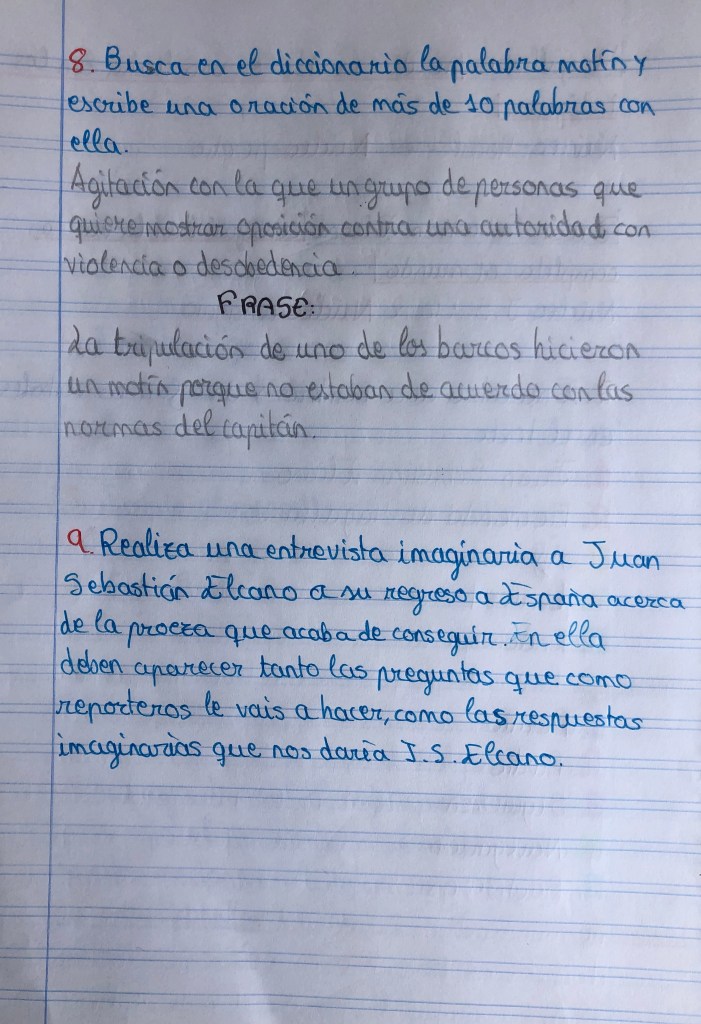 8. Busca en el diccionario la palabra motín y
escribe una oración de más de 10 palabras con
ella.
Agitación con la que un grupo de personas que
quiere mostrar oposición contra una autoridad con
violencia o desobedencia.
FRASE:
La tripulación de uno de los barcos hicieron
un motín porque no estaban de acuerdo con las
normas del capitán.
9. Realiza una entrevista imaginaria a Juan
Sebastián Elcano a su regreso a España acerca
de la proeza que acaba de conseguir. En ella
deben aparecer tanto las preguntas que como
reporteros le vais a hacer, como las respuestas
imaginarias que nos daría J.S. Elcano.